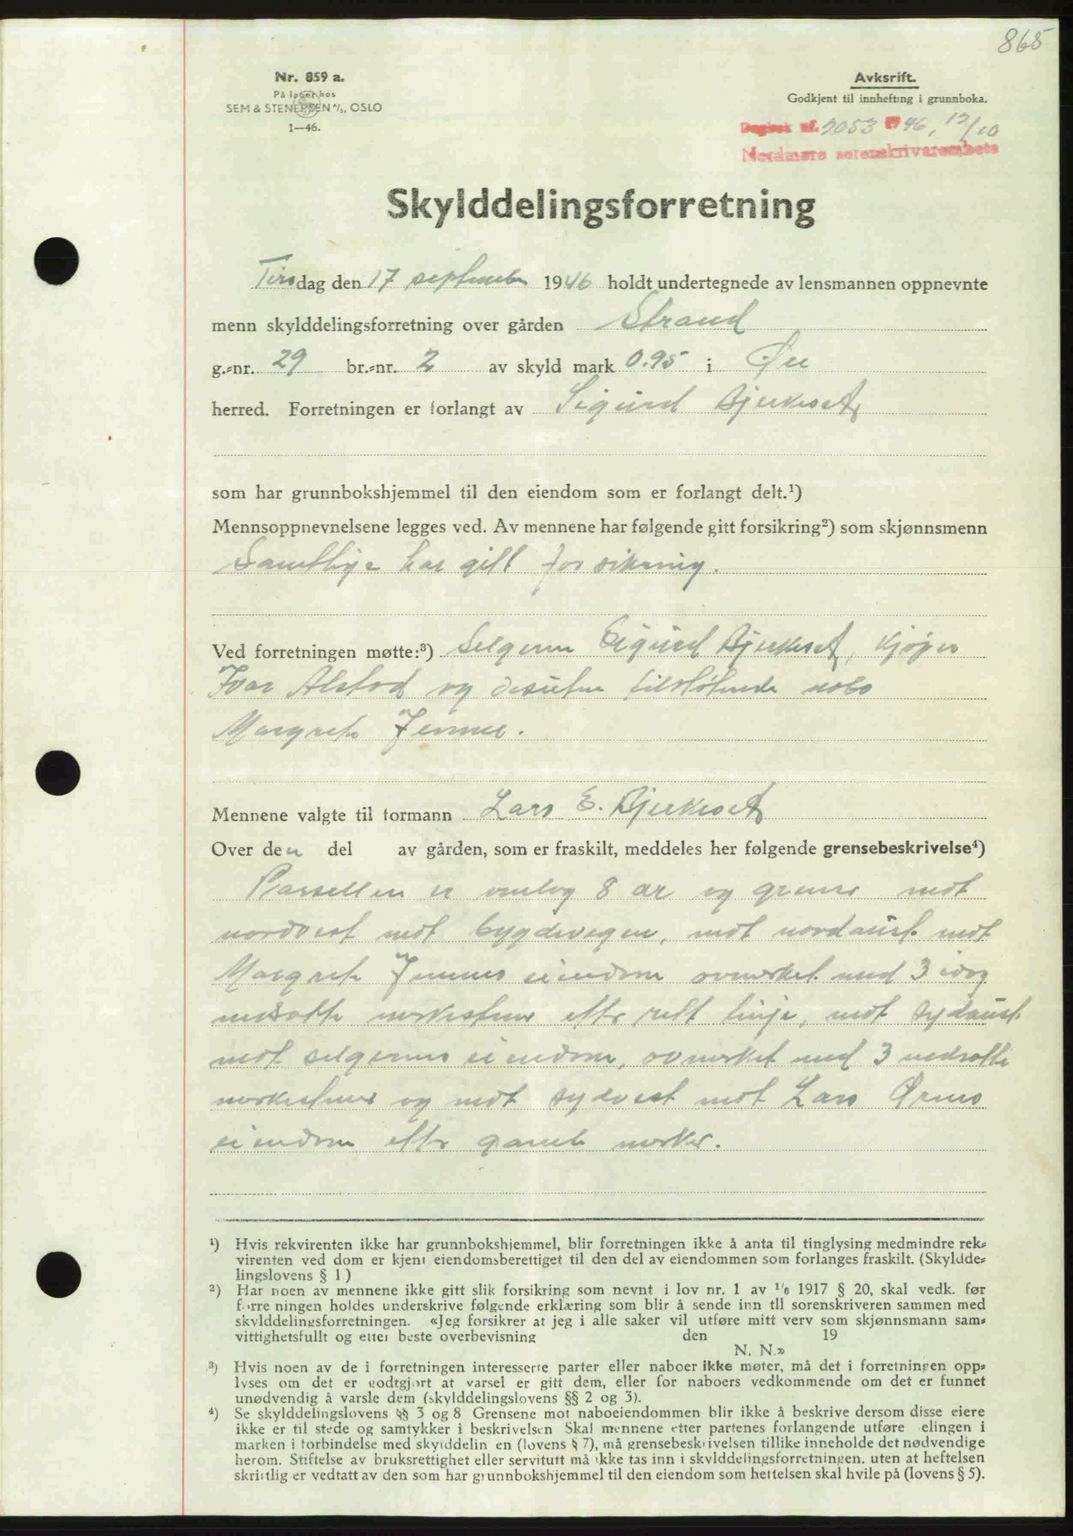 865
Nr. 859 a.
På lager hos
SEM & STENERSEN A/S, OSLO
1—46.
Avskrift.
Godkjent til innhefting i grunnboka.
Dagbok nr. 2053 19 46, 12/10
Nordmøre sorenskriverembete
Skylddelingsforretning
Tirsdag den 17 september 1946 holdt undertegnede av lensmannen oppnevnte
menn skylddelingsforretning over gården Strand
g.-nr. 29 br.-nr. 2 av skyld mark 0.95 i Øre
herred. Forretningen er forlangt av Sigurd Bjerkeset
som har grunnbokshjemmel til den eiendom som er forlangt delt.¹)
Mennsoppnevnelsene legges ved. Av mennene har følgende gitt forsikring²) som skjønnsmenn
Samtlige har gitt forsikring.
Ved forretningen møtte:³) Selgeren Sigurd Bjerkeset, kjøper
Ivar Alstad og desuten tilstøtende nabo
Margrete
Mennene valgte til formann Lars E. Bjerkeset
Over den del av gården, som er fraskilt, meddeles her følgende grensebeskrivelse⁴)
Parsellen er omlag 8 ar og grenser mot
nordvest mot bygdevegen, mot nordaust mot
Margrete eiendom avmerket med 3 idag
nedsatte merkestener efter rett linje, mot sydaust
mot selgerens eiendom, avmerket med 3 nedsatte
merkestener og mot sydvest mot Lars Øres
eiendom efter gamle merker.
¹) Hvis rekvirenten ikke har grunnbokshjemmel, blir forretningen ikke å anta til tinglysing medmindre rek-
virenten ved dom er kjent eiendomsberettiget til den del av eiendommen som forlanges fraskilt. (Skyldde-
lingslovens § 1)
²) Har noen av mennene ikke gitt slik forsikring som nevnt i lov nr. 1 av 1/6 1917 § 20, skal vedk. før
forretningen holdes underskrive følgende erklæring som blir å sende inn til sorenskriveren sammen med
skylddelingsforretningen. «Jeg forsikrer at jeg i alle saker vil utføre mitt verv som skjønnsmann sam-
vittighetsfullt og etter beste overbevisning den 19
N. N.»
³) Hvis noen av de i forretningen interesserte parter eller naboer ikke møter, må det i forretningen opp-
lyses om det er godtgjort at varsel er gitt dem, eller for naboers vedkommende om det er funnet
unødvendig å varsle dem (skylddelingslovens §§ 2 og 3).
⁴) Se skylddelingslovens §§ 3 og 8 Grensene mot naboeiendommen blir ikke å beskrive dersom disse eiere
ikke er til stede og samtykker i beskrivelsen Skal mennene etter partenes forlangende utføre delingen i
marken i forbindelse med skylddelingen (lovens § 7), må grensebeskrivelsen tillike inneholde det nødvendige
herom. Stiftelse av bruksrettighet eller servitutt må ikke tas inn i skylddelingsforretningen, uten at heftelsen
skriftlig er vedtatt av den som har grunnbokshjemmel til den eiendom som heftelsen skal hvile på (lovens § 5).